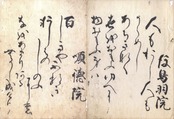 後鳥羽院
人もおし
人も
うらめし
あちきなく
世をおもふゆへに
物おもふ身は
順徳院
百
しきやふるき
軒はの
しのふ
にも
なをあまりある
むかしなりけり